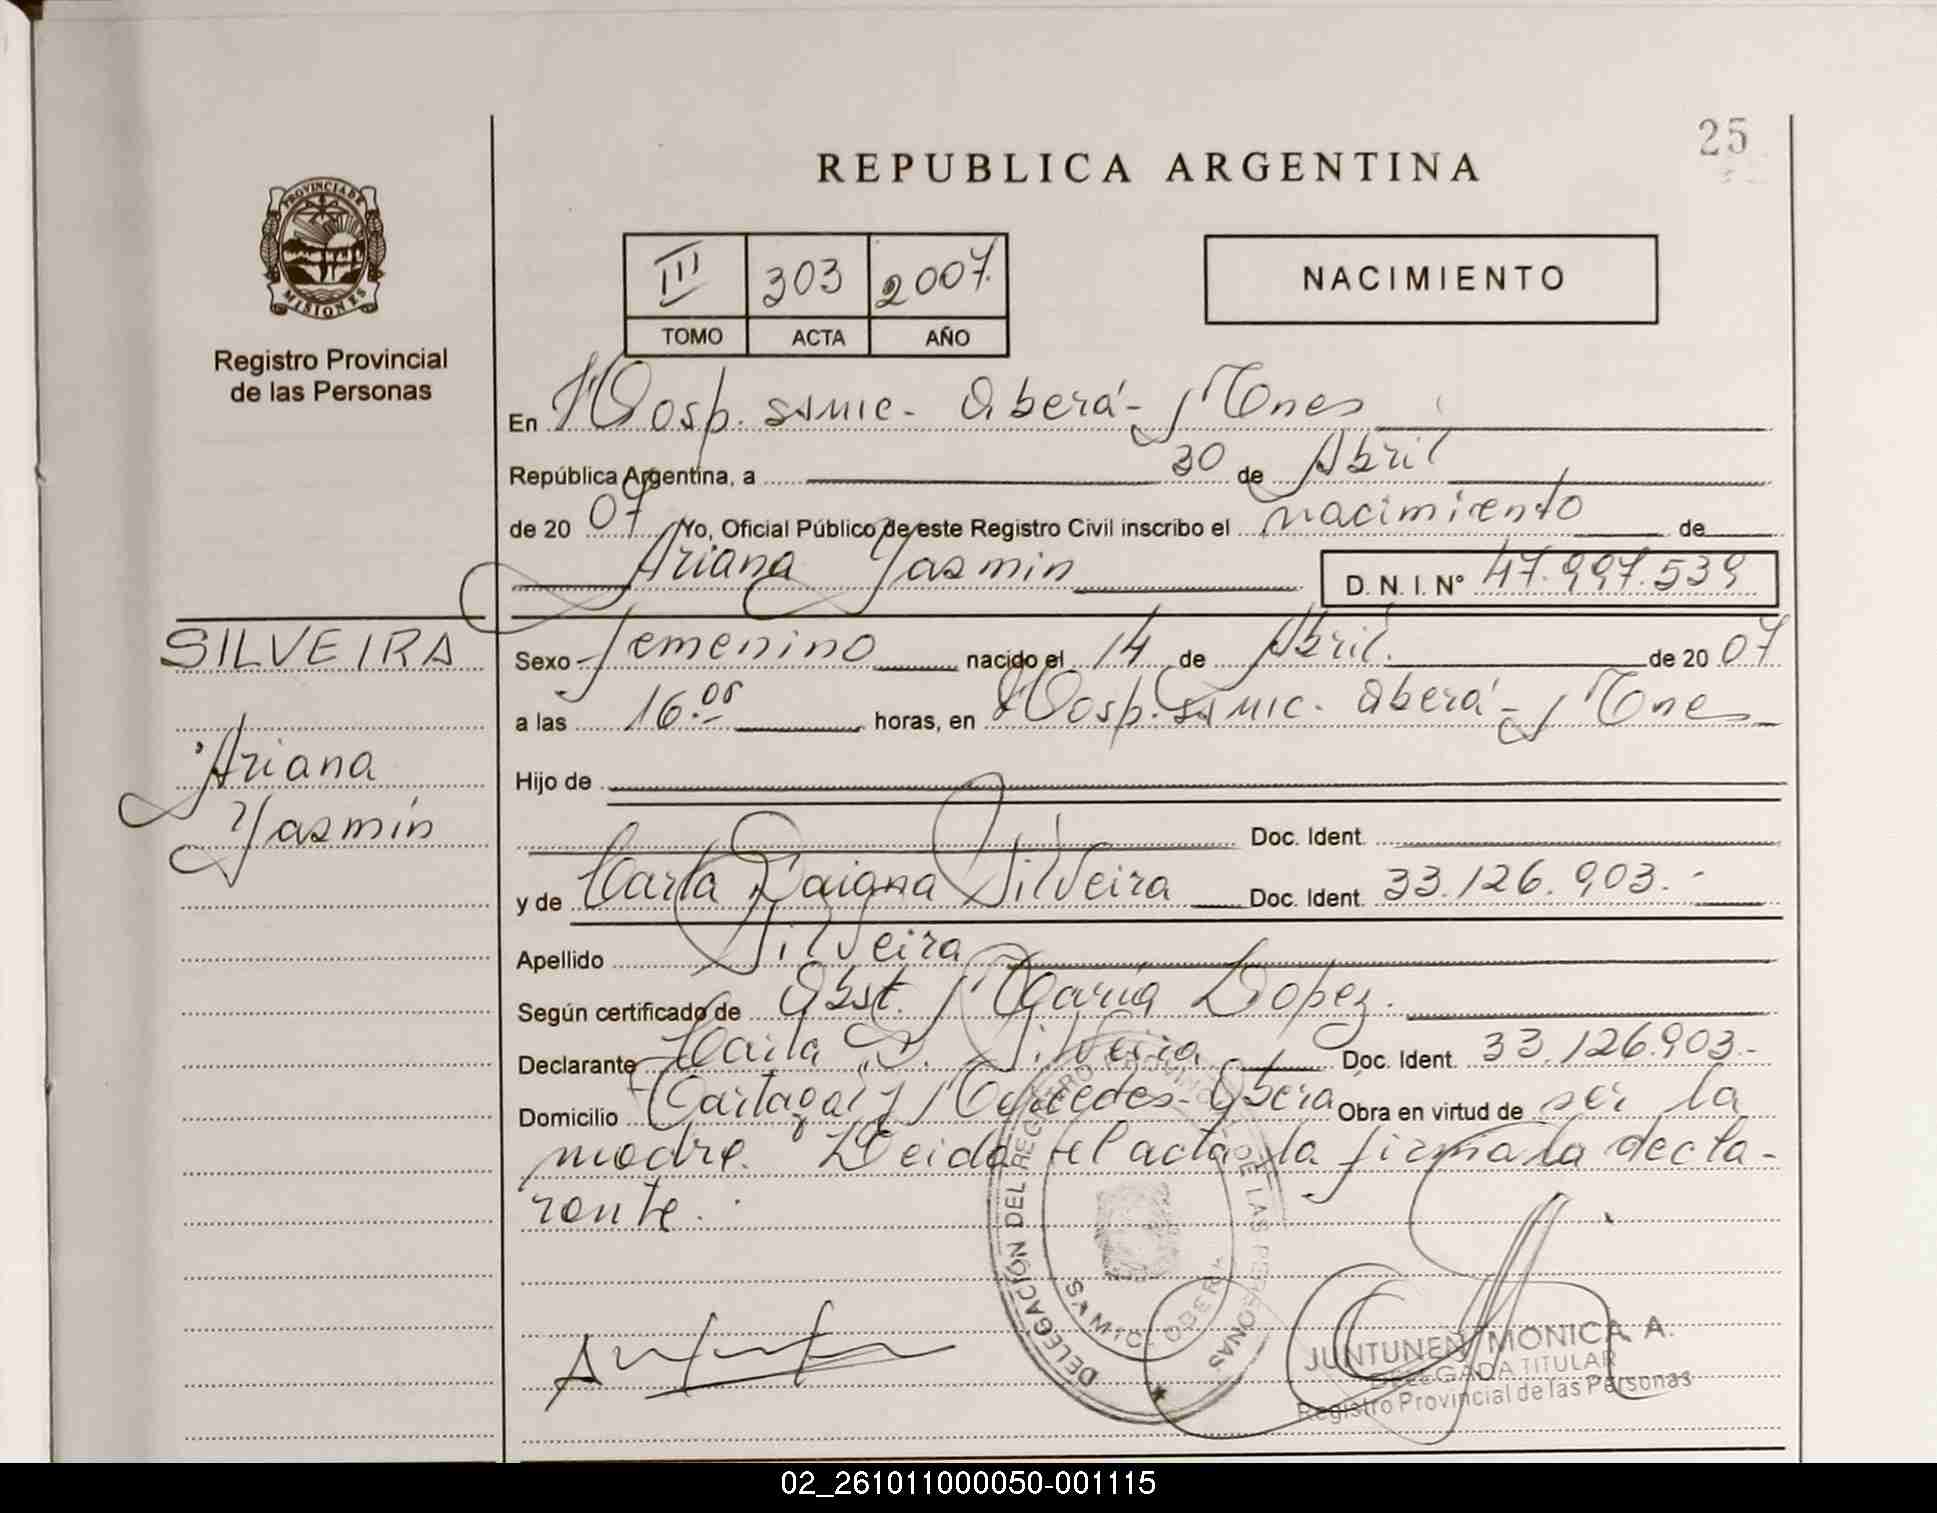 25
REPUBLICA ARGENTINA
PROVINCIA DE
MISIONES
Registro Provincial
de las Personas
III 303 2007.
TOMO ACTA AÑO
NACIMIENTO
En Hosp. SAMIC. Oberá - Mnes
República Argentina, a 30 de Abril
de 20 07 Yo, Oficial Público de este Registro Civil inscribo el nacimiento de
Ariana Yasmin D. N. I. N° 47.997.539
SILVEIRA
Ariana
Yasmin
Sexo femenino nacido el 14 de Abril. de 20 07
a las 16.05 horas, en Hosp. SAMIC. Oberá - Mnes
Hijo de
Doc. Ident.
y de Carla Daiana Silveira Doc. Ident. 33.126.903.-
Apellido Silveira
Según certificado de Obst. María Lopez.
Declarante Carla D. Silveira Doc. Ident. 33.126.903.-
Domicilio y Mercedes - Oberá Obra en virtud de ser la
madre. Leida el acta la firma la decla-
rante.
DELEGACIÓN DEL REGISTRO PROVINCIAL DE LAS PERSONAS
SAMIC. OBERA
JUNTUNEN MONICA A.
DELEGADA TITULAR
Registro Provincial de las Personas
02_261011000050-001115